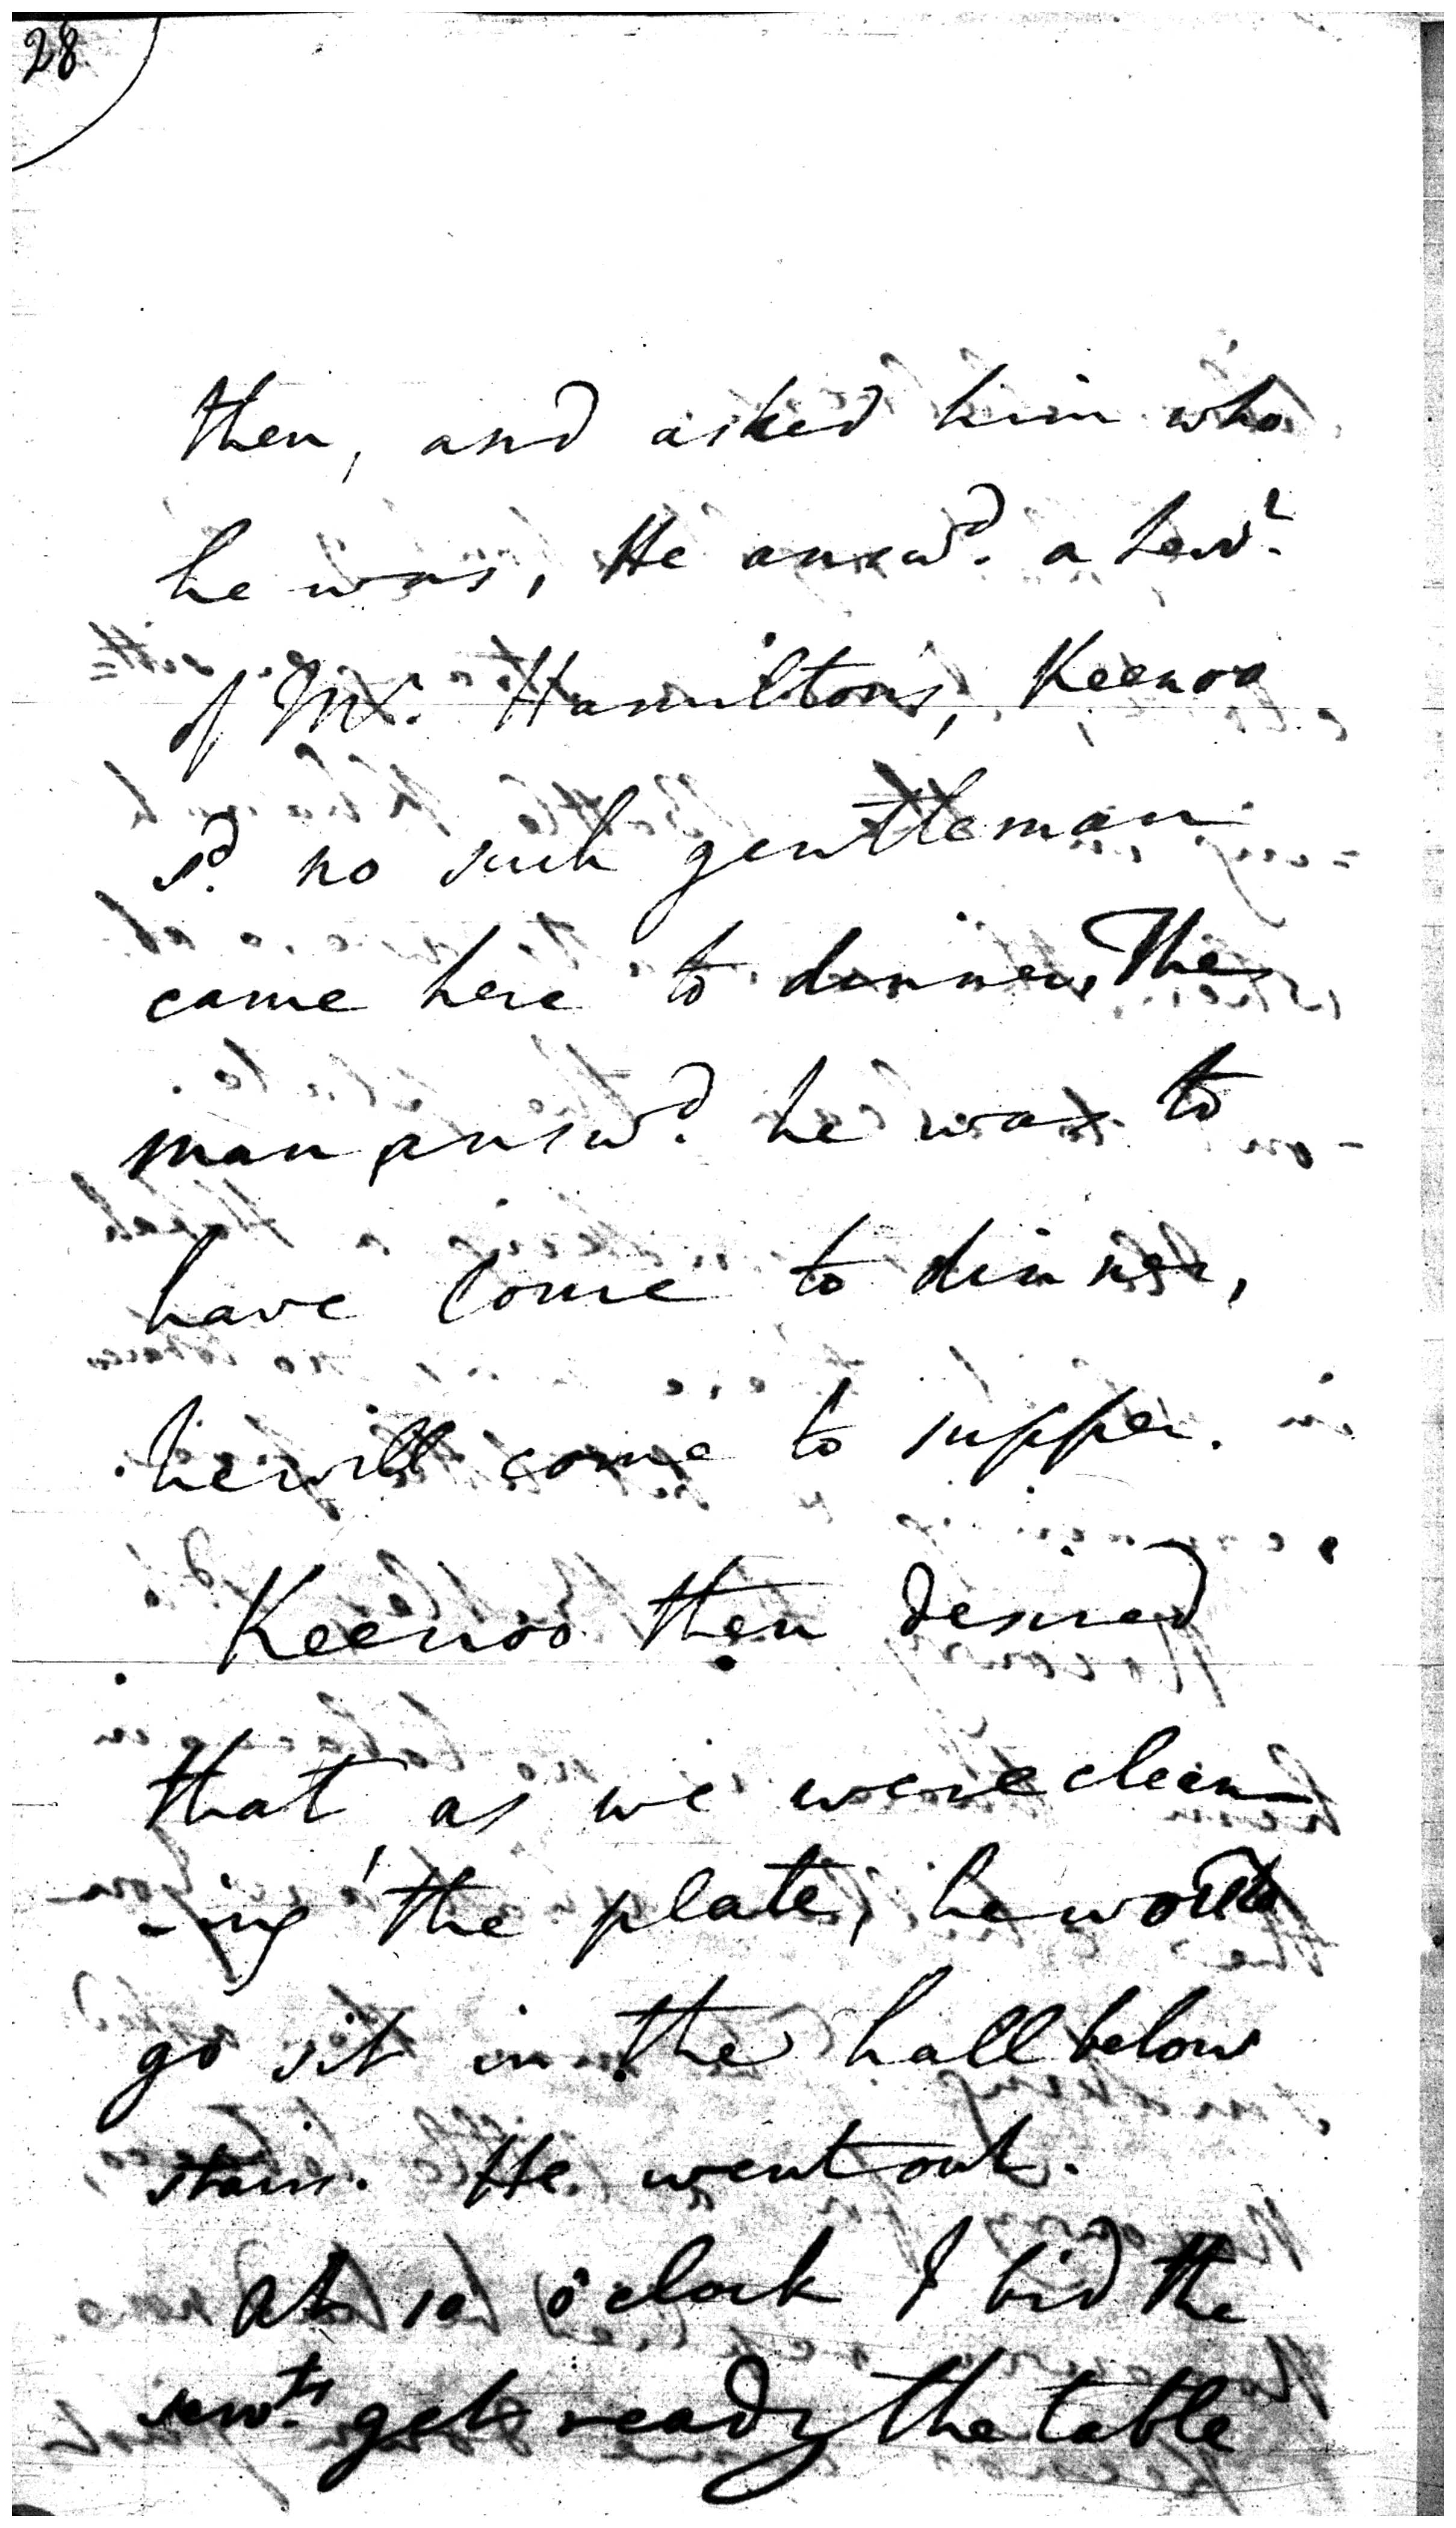 28
then, and asked him who
he was, He answd. a Servt.
of Mr. Hamiltons, Keenoo
sd. no such gentleman
came here to dinner, The
man answd. he was to
have come to dinner,
he will come to supper.
Keenoo then desired
that as we were clean-
-ing the plate, he would
go sit in the hall below
stairs. He went out.
At 10 o'clock I bid the
servts. get ready the table